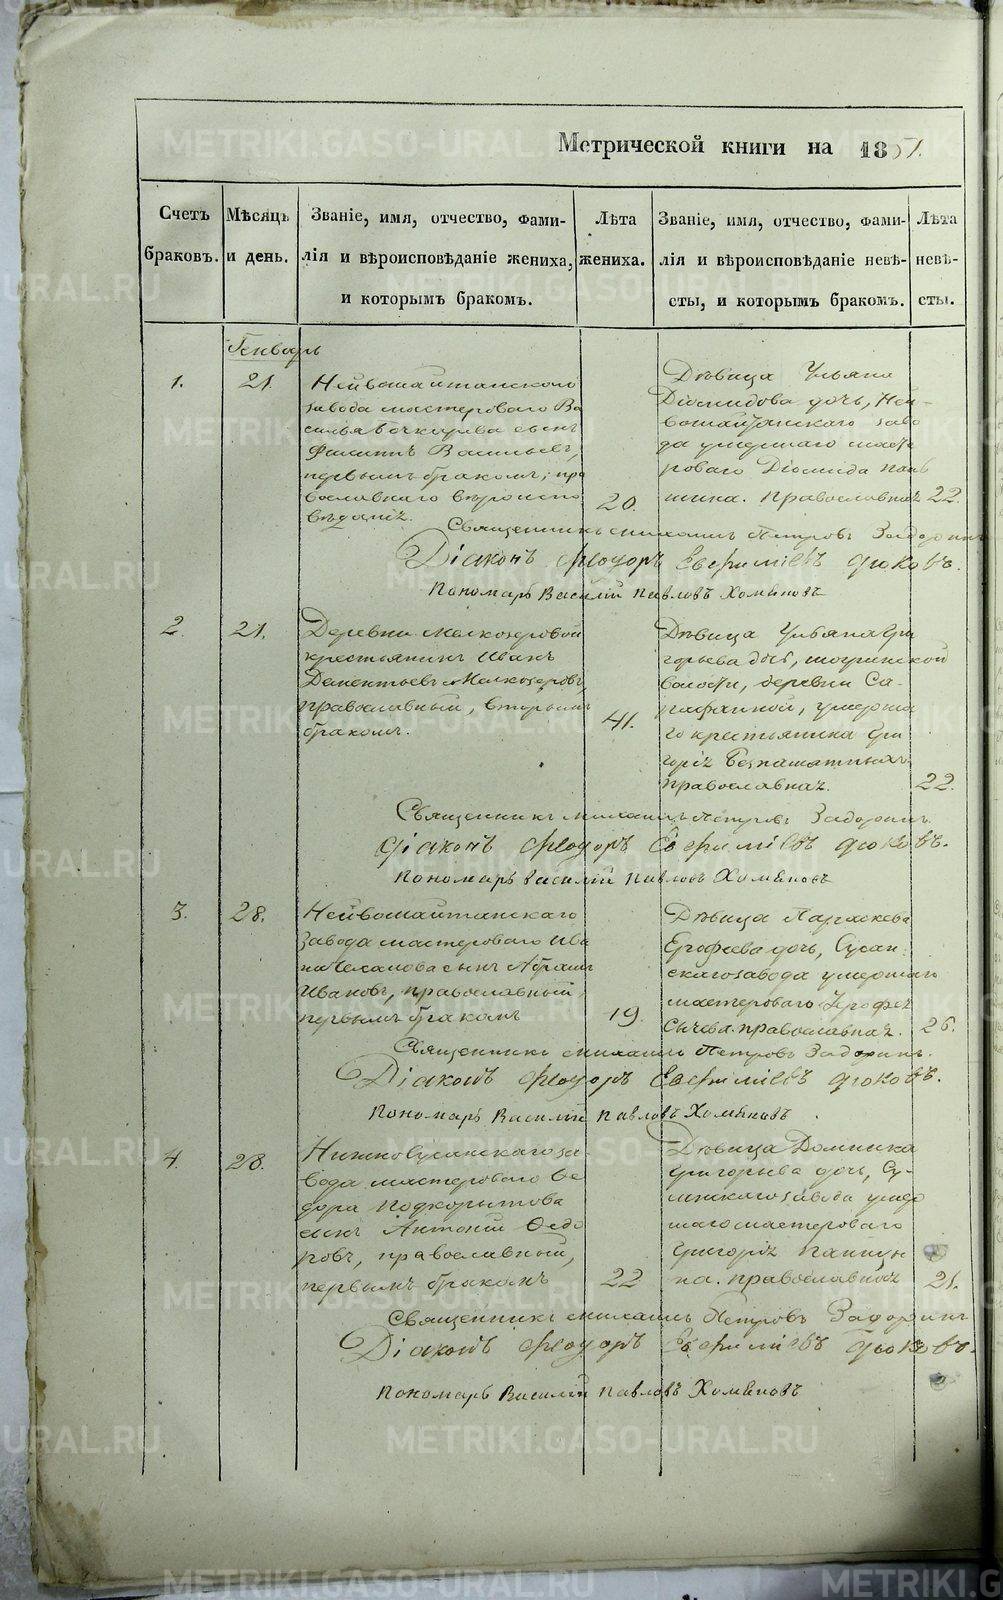 Метрической книги на 1857.
Счетъ браковъ.
Мѣсяцъ и день.
Званіе, имя, отчество, фами-
лія и вѣроисповѣданіе жениха,
и которымъ бракомъ.
Лѣта жениха.
Званіе, имя, отчество, фами-
лія и вѣроисповѣданіе невѣ-
сты, и которымъ бракомъ.
Лѣта невѣ-
сты.
Генварь
1.
21.
Нейвошайтанскаго
завода мастероваго Ва
силья Бочкарева сынъ
Филипъ Васильевъ,
первымъ бракомъ, пра
вославнаго вѣроиспо
вѣданія.
20.
Дѣвица Ульяна
Діомидова дочь, Ней-
вошайтанскаго заво
да умершаго масте
роваго Діомида
православная
22.
Священникъ Михаилъ Петровъ Задоринъ
Діаконъ Ѳеодоръ Евѳиміевъ
Пономарь Василій Павловъ Хомяковъ
2.
21.
Деревни Мелкозеровой
крестьянинъ Иванъ
Дементьевъ Мелкозеровъ,
православный, вторымъ
бракомъ.
41.
Дѣвица Ульяна Гри
горьева дочь,
волости, деревни
умерша
го крестьянина Гри
горія Безпамятныхъ
православная.
22.
Священникъ Михаилъ Петровъ Задоринъ.
Діаконъ Ѳеодоръ Евѳиміевъ
Пономарь Василій Павловъ Хомяковъ
3.
28.
Нейвошайтанскаго
завода мастероваго Ива
на сынъ Абрамъ
Ивановъ, православный,
первымъ бракомъ
19.
Дѣвица Параскева
Ерофеева дочь, Сусан-
скаго завода умершаго
мастероваго Ерофея
Сычева православная.
26.
Священникъ Михаилъ Петровъ Задоринъ.
Діаконъ Ѳеодоръ Евѳиміевъ
Пономарь Василій Павловъ Хомяковъ.
4.
28.
Нижносусанскаго за-
вода мастероваго Ѳе
дора Подкорытова
сынъ Антоній Ѳедо
ровъ, православный,
первымъ бракомъ
22
Дѣвица Домника
Григорьева дочь,
завода умер
шаго мастероваго
Григорія
православная
21.
Священникъ Михаилъ Петровъ Задоринъ
Діаконъ Ѳеодоръ Евѳиміевъ
Пономарь Василій Павловъ Хомяковъ
METRIKI.GASO-URAL.RU